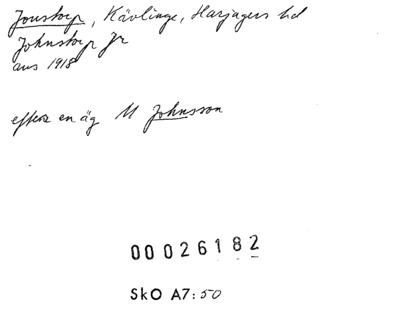 Jonstorp, Kävlinge, Harjagers hd
Johnstorp Jr
aus 1918
efter en äg M Johnsson
00026182
SkO A7:50